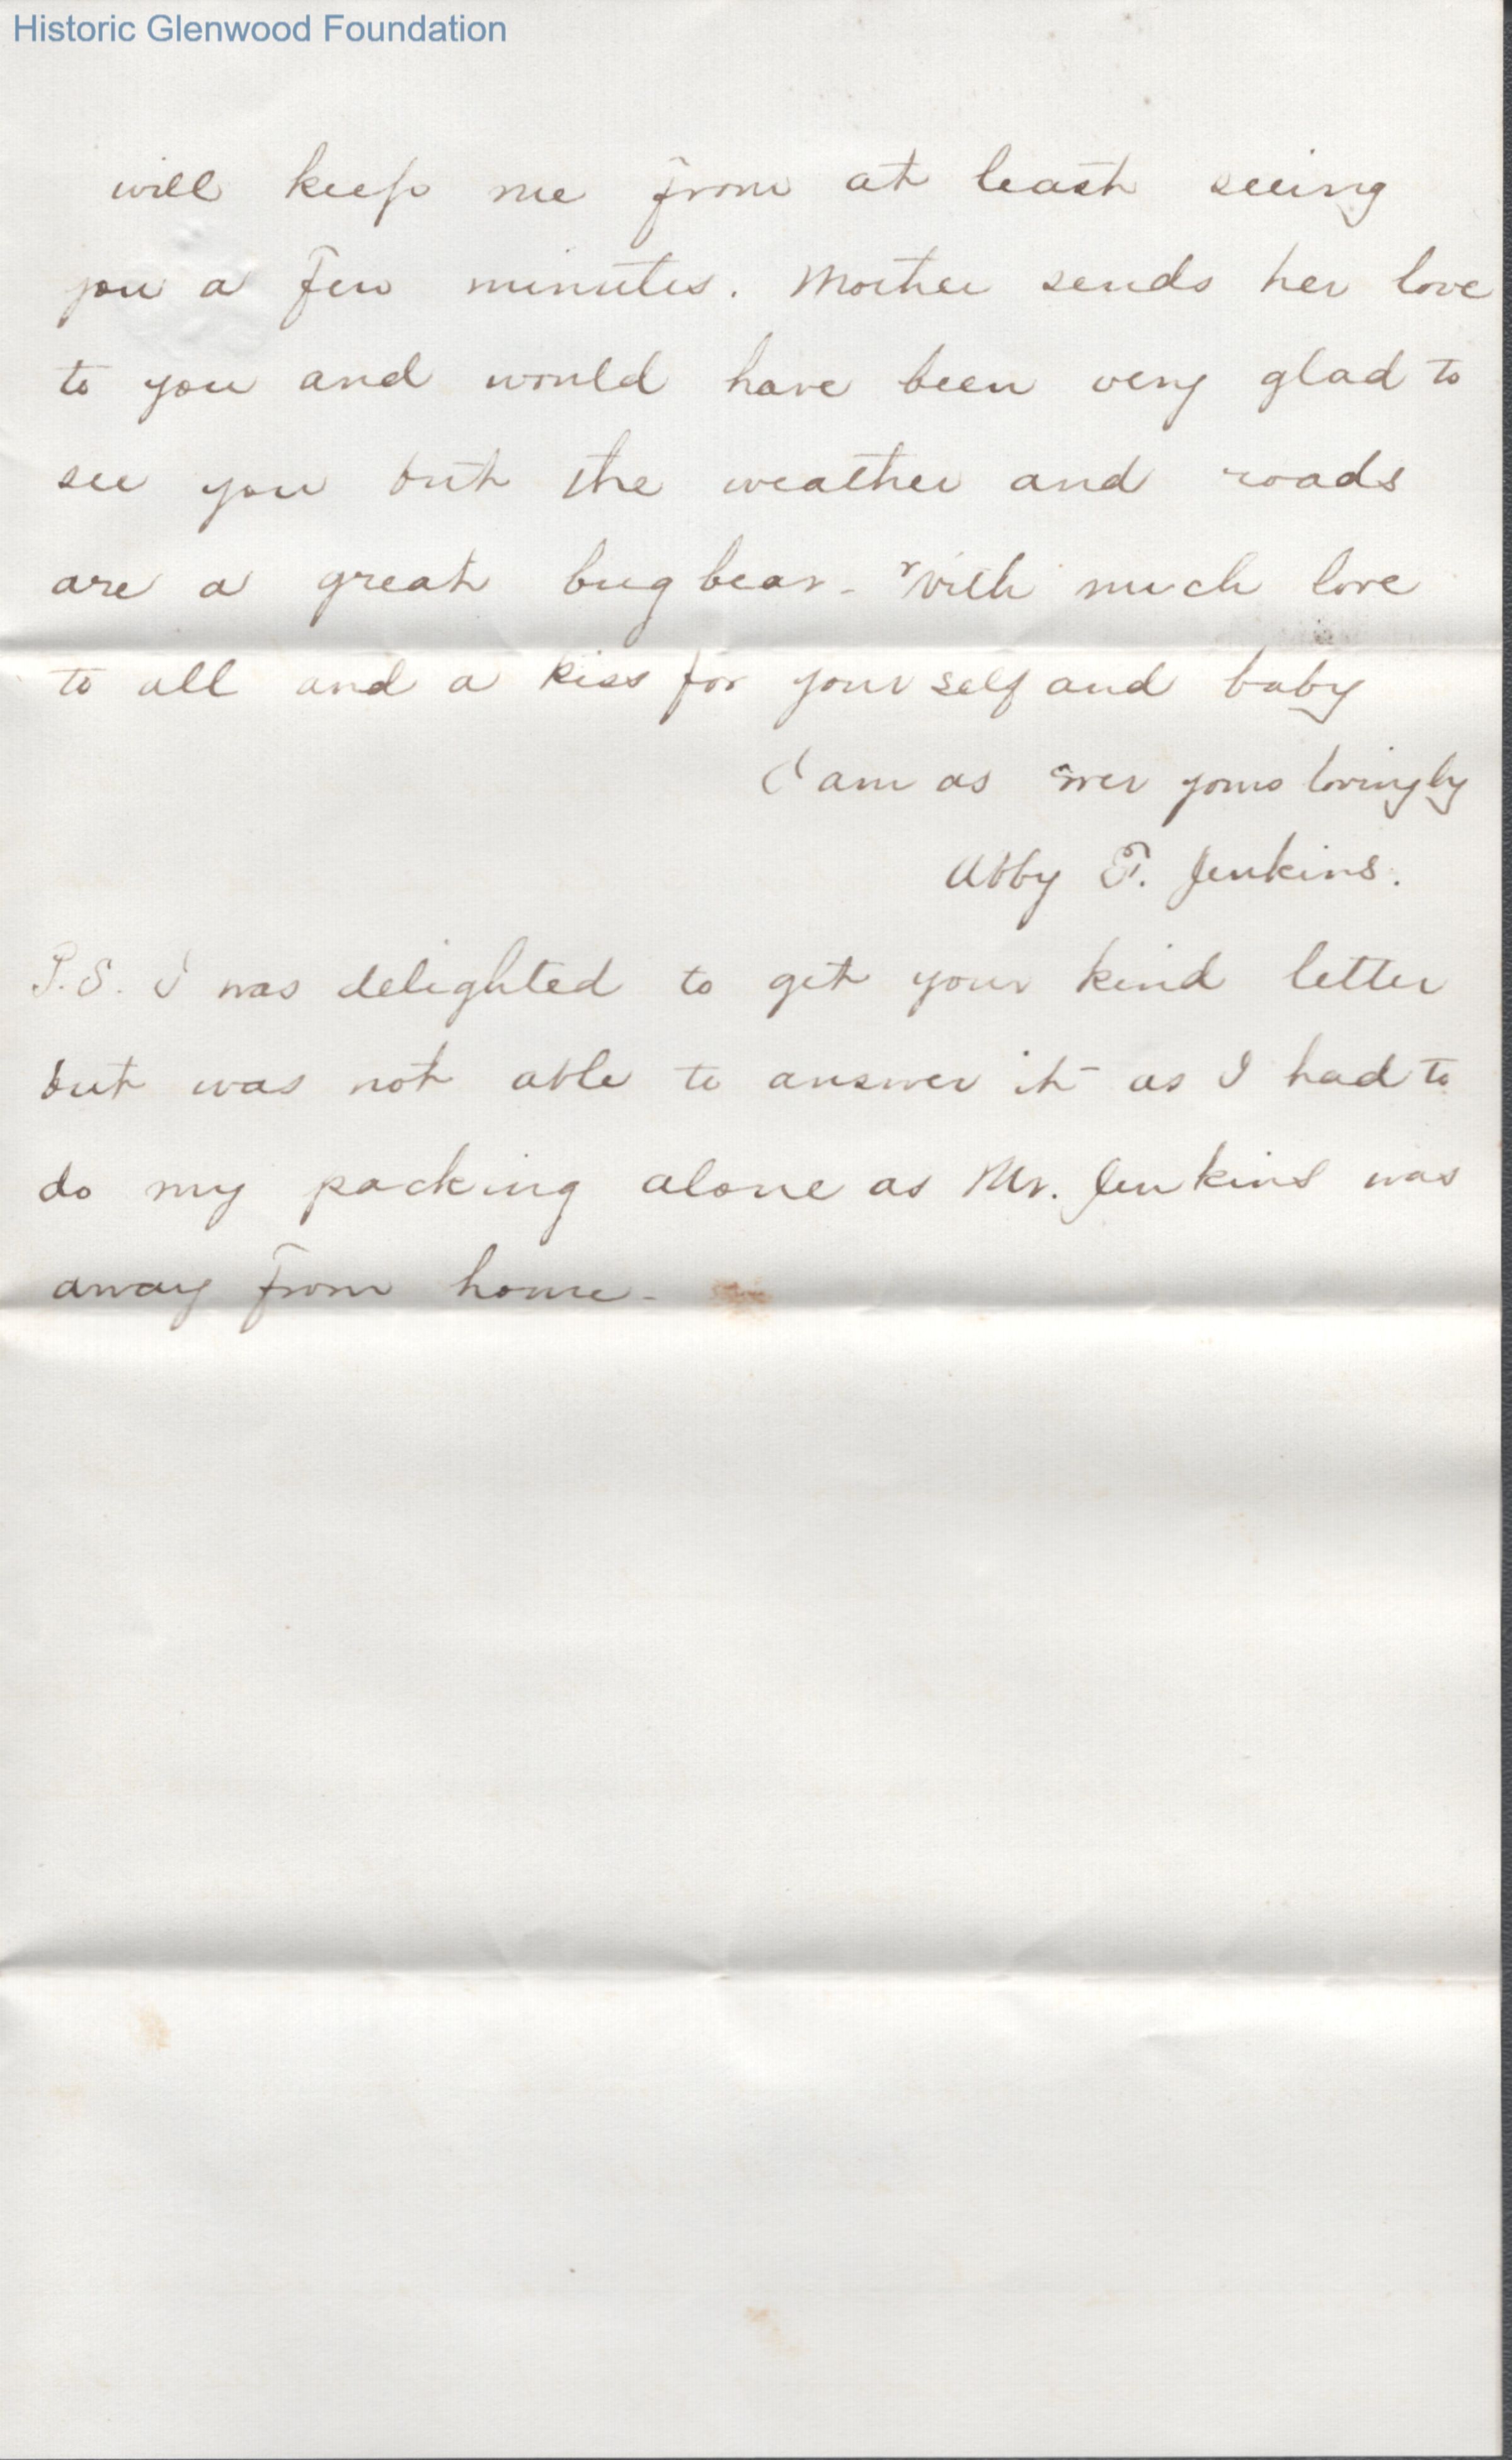 Historic Glenwood Foundation
will keep me from at least seeing
you a few minutes. Mother sends her love
to you and would have been very glad to
see you but the weather and roads
are a great bug bear - With much love
to all and a kiss for your self and baby
I am as ever yours lovingly
Abby F. Jenkins.
P.S. I was delighted to get your kind letter
but was not able to answer it - as I had to
do my packing alone as Mr. Jenkins was
away from home -